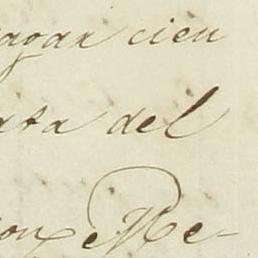 agar cien
ata del
con Me-